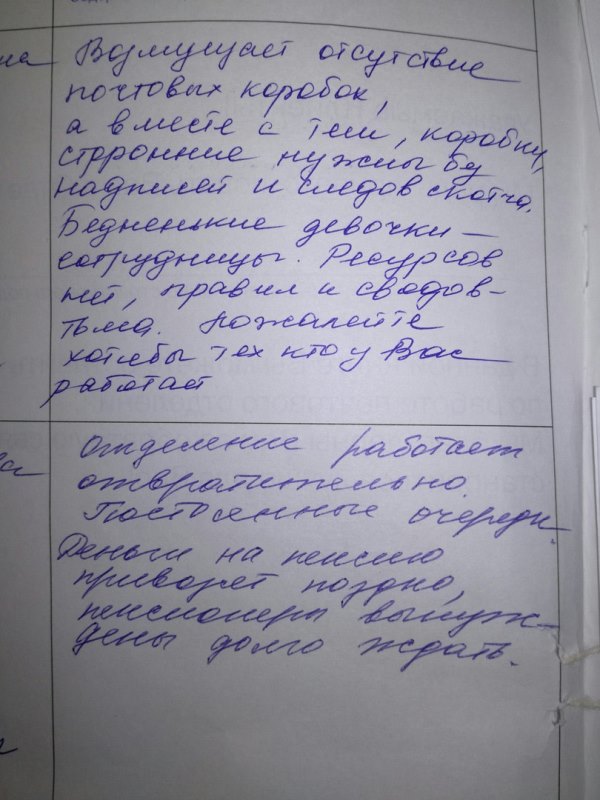 Возмущает отсутствие
почтовых коробок,
а вместе с тем, коробки,
сторонние нужны бу
надписей и следов скотча.
Бедненькие девочки—
сотрудницы. Ресурсов
нет, правил и сводов-
тьма. Пожалейте
хотябы тех кто у Вас
работает
Отделение работает
отвратительно.
Постоянные очереди.
Деньги на пенсию
привозят поздно,
пенсионеры вынуж-
дены долго ждать.